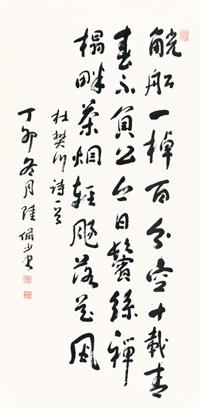 觥船一棹百分空十載青
春不負公今日鬢絲禪
榻畔茶烟輕颺落花風
杜樊川詩一首
丁卯冬月陸儼少